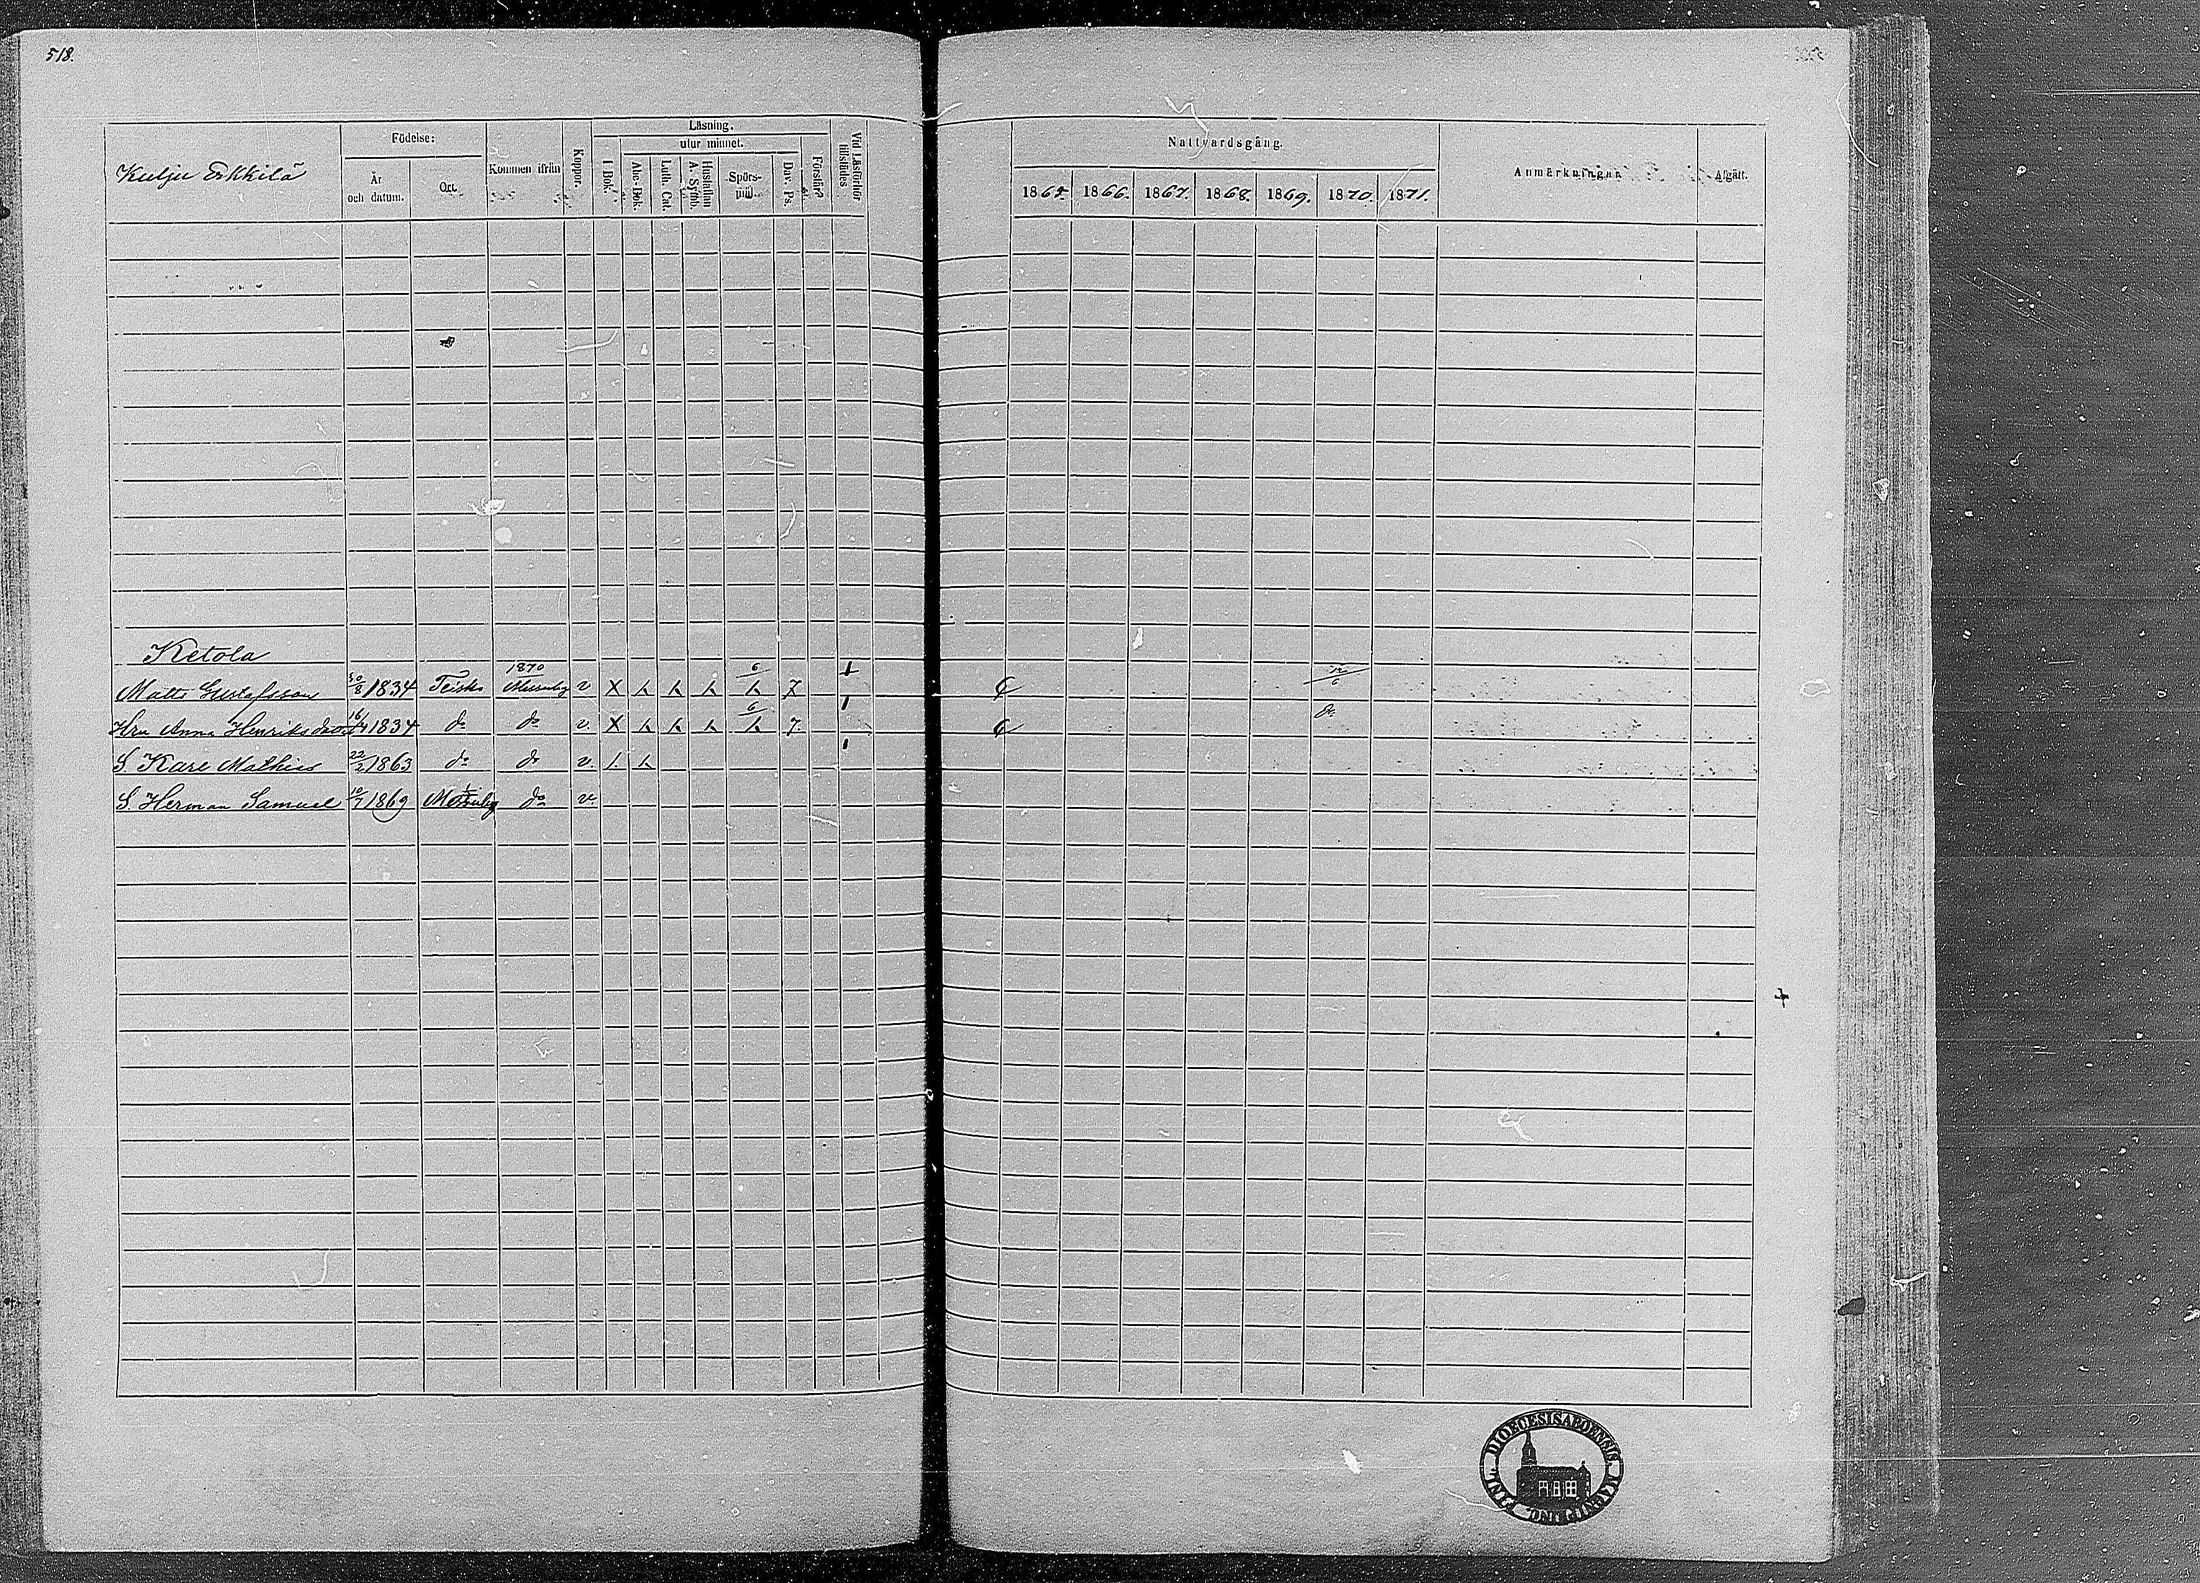 518.
Kulju Erkkilä
Födelse:
År och datum.
Ort.
Kommen ifrån
Koppor.
Läsning.
I Bok.
utur minnet.
Abc-Bok.
Luth. Cat.
Hustaflan A. Symb.
Spörs-mål.
Dav. Ps.
Förstår?
Vid Läsförhör tillstädes
Nattvardsgång.
1865. 1866. 1867. 1868. 1869. 1870. 1871.
Anmärkningar.
Afgått.
Ketola
Matts Gustafsson 30/8 1834 Teisko 1870 Messuby v X h h h 6/h 7 12/6
Hru Anna Henriksdr 1834 do do v. X h h h 6/h 7. do
S. Karl Mathias 22/2 1863 do do v. 1. h
S. Herman Samuel 10/7 1869 Messuby do v.
DIOECESIS ABOENSIS